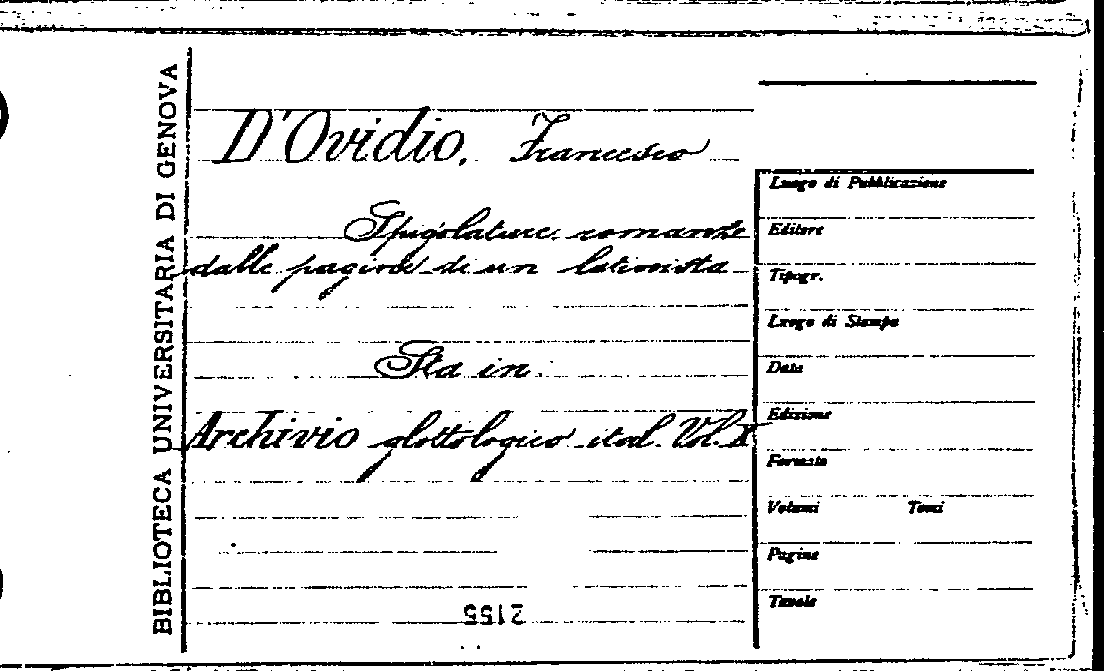 BIBLIOTECA UNIVERSITARIA DI GENOVA
D'Ovidio, Francesco
Spigolature romanze
dalle pagine di un latinista
Sta in:
Archivio glottologico ital. Vol. X
2155
Luogo di Pubblicazione
Editore
Tipogr.
Luogo di Stampa
Data
Edizione
Formato
Volumi Tomi
Pagine
Tavole